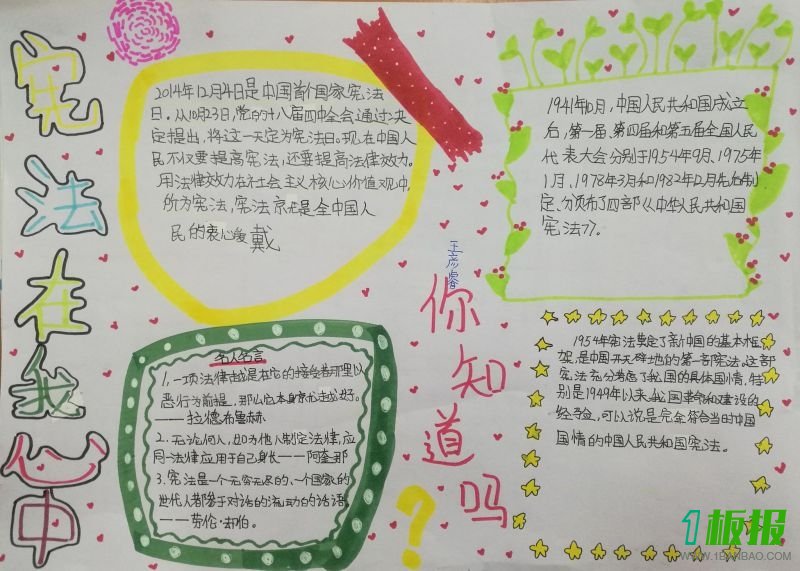 宪法在我心中
2014年12月4日是中国首个国家宪法
日。从10月23日,党的十八届四中全会通过决
定提出,将这一天定为宪法日。现在中国人
民不仅要提高宪法,还要提高法律效力。
用法律效力在社会主义核心价值观中
价为宪法,宪法
民的衷心爱戴
1941年10月,中国人民共和国成立
后,第一届、第四届和第五届全国人民
代表大会分别于1954年9月、1975年
1月、1978年3月和1982年12月先后制
定、分颁布了四部《中华人民共和国
宪法》。
王彦睿
你知道吗?
名人名言
1.一项法律越是在它的接受者那里以
恶行为前提,那么它本身就越好。
——拉德布鲁赫
2.无论何人,如为他人制定法律,应
同一法律应用于自己身长——阿奎那
3.宪法是一个无穷无尽的、一个国家的
世代人都参于对话的流动的话语
——劳伦·却伯。
1954年宪法奠定了新中国的基本框
架,是中国开天辟地的第一部宪法。这部
宪法充分考虑了我国的具体国情,特
别是1949年以来,我国革命和建设的
经验,可以说是完全符合当时中国
国情的中国人民共和国宪法。
1板报
WWW.1BANBAO.COM